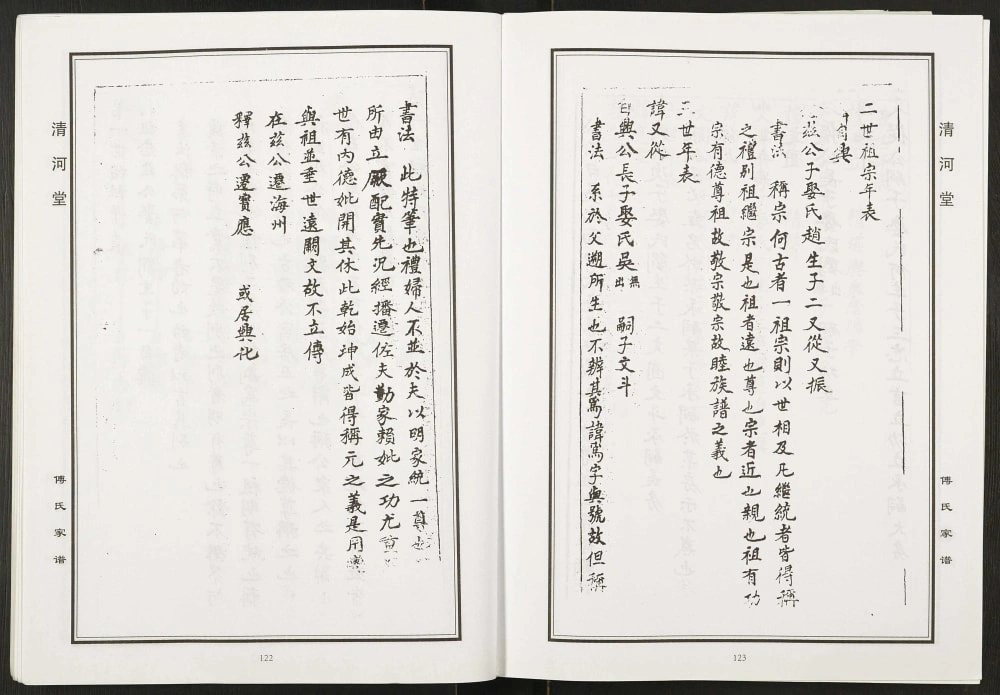 清河堂
傅氏家谱
書法　此特筆也禮婦人不並於夫以明家統一尊也
所由立厥配實先况經播遷佐夫勤家賴妣之功尤
世有内德妣開其休此乾始坤成皆得稱元之義是用
與祖並垂世遠闕文故不立傳
在茲公遷海州
釋茲公遷寶應　或居興化
122
清河堂
傅氏家谱
二世祖宗年表
茲公子娶氏趙生子二又從又振
書法　稱宗何古者一祖宗則以世相及凡繼統者皆得稱
之禮别祖繼宗是也祖者遠也尊也宗者近也親也祖有功
宗有德尊祖故敬宗敬宗故睦族譜之義也
三世年表
諱又從
自興公長子娶氏吳無出　嗣子文斗
書法　系於父遡所生也不辨其爲諱爲字與號故但稱
123